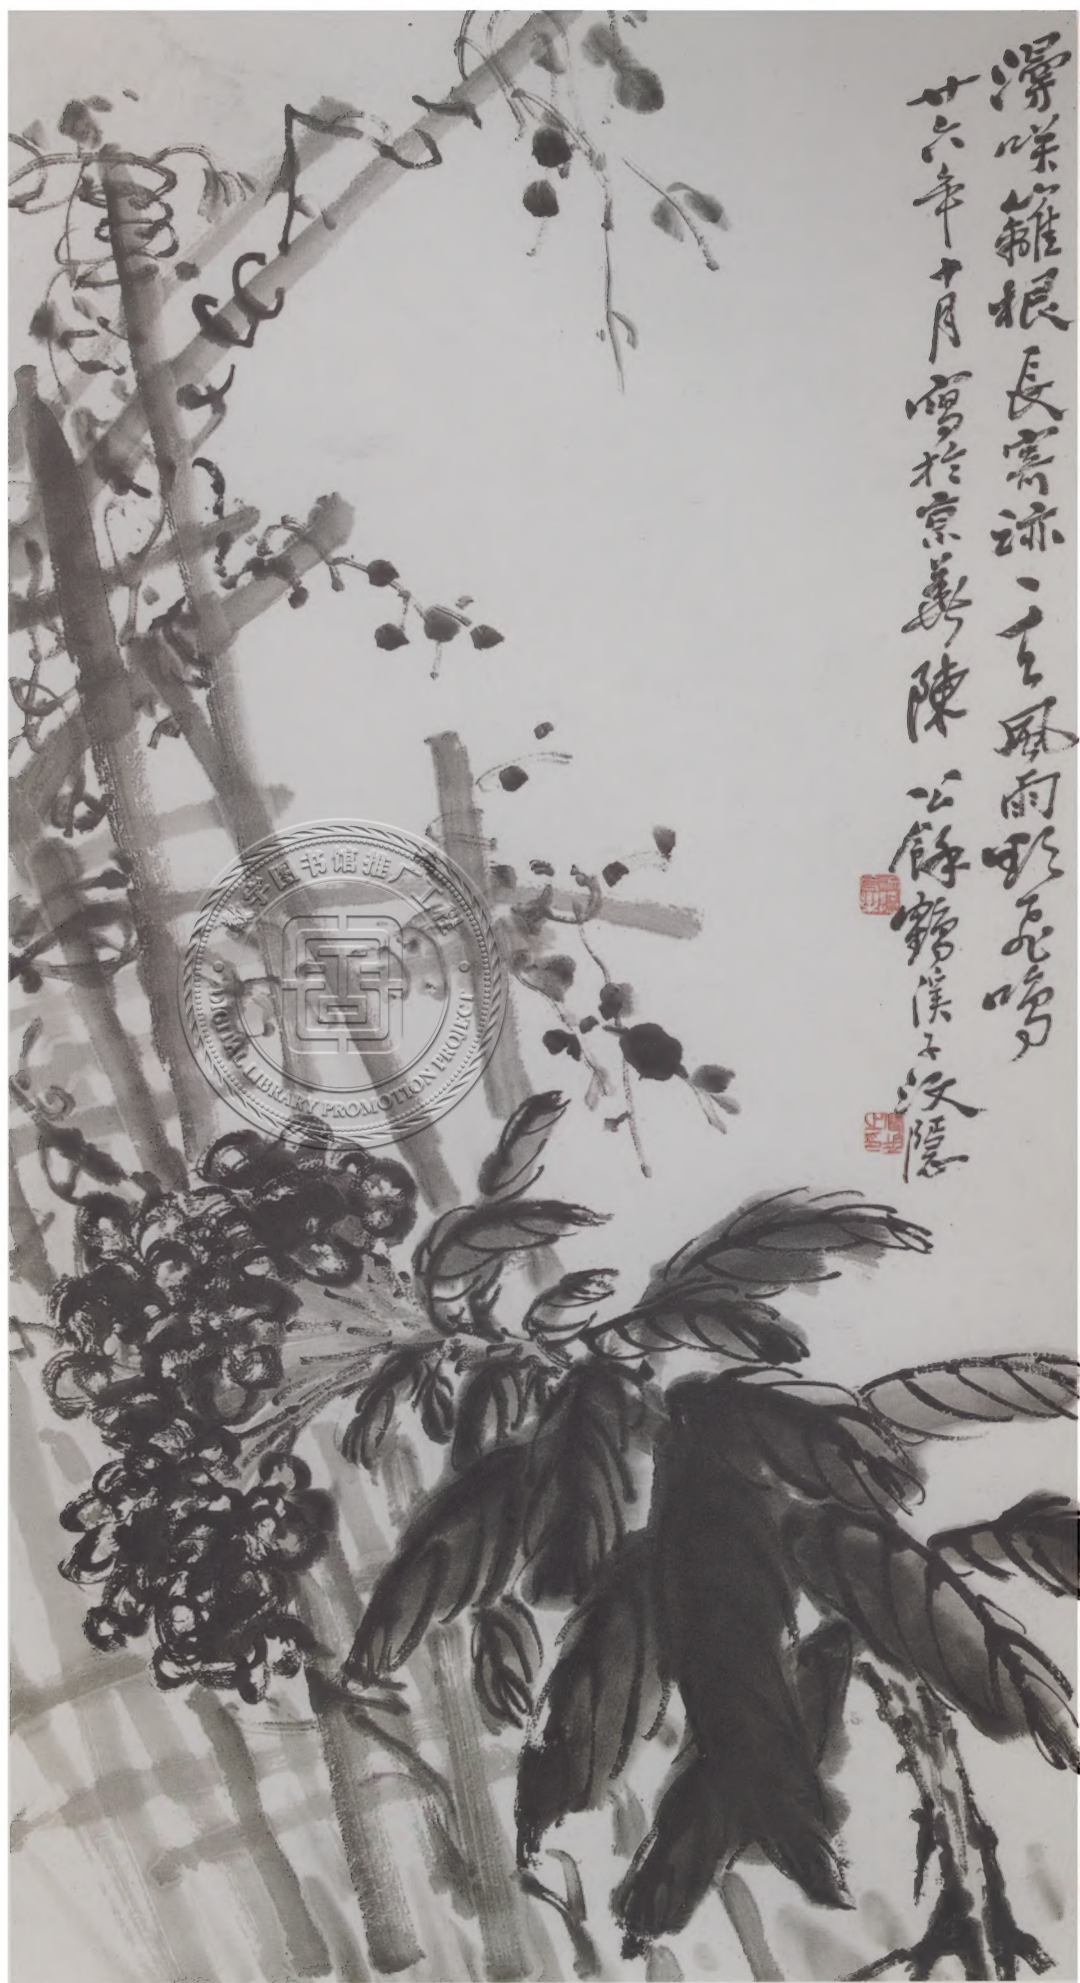 漫咲籬根長寄迹一天風雨飛鳴
廿六年十月寫於京華陳公餘鶴溪子隱
数字图书馆推广工程
DIGITAL LIBRARY PROMOTION PROJECT